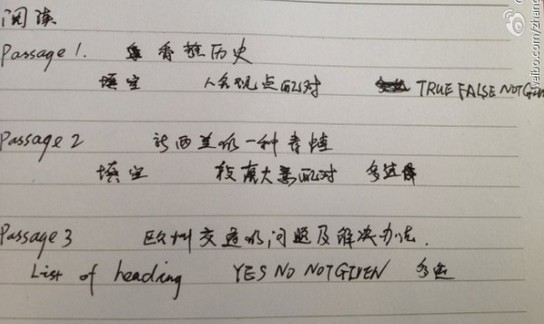 阅读
Passage 1. 香熊历史
填空 人名观点配对 TRUE FALSE NOT GIVEN
Passage 2 新西兰的一种青蛙
填空 段落大意配对 多选
Passage 3 欧洲交通的问题及解决办法.
List of heading YES NO NOT GIVEN 多选
weibo.com/zhang